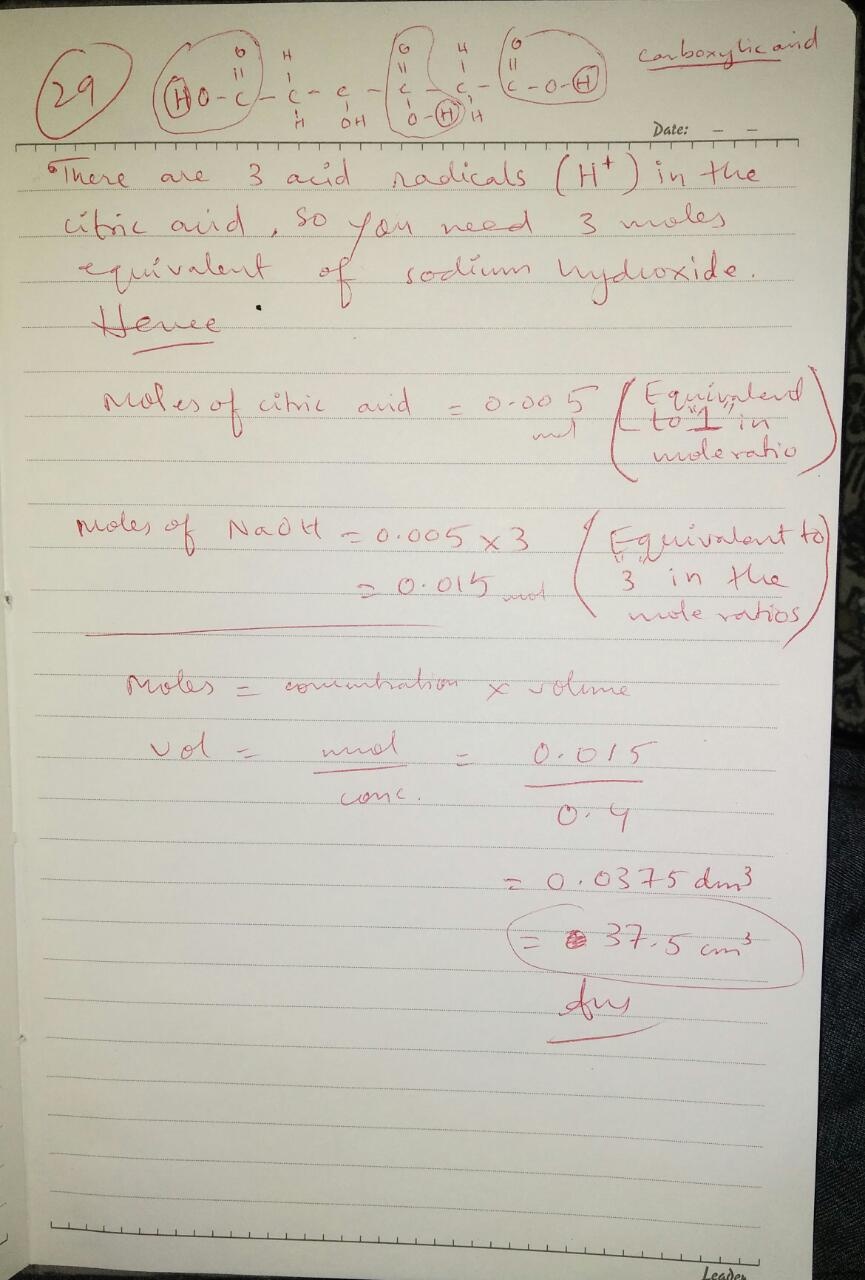 29
O H O H O carboxylic acid
|| | || | ||
HO - C - C - C - C - C - C - O - H
H OH O - H H
Date: - -
There are 3 acid radicals (H⁺) in the
citric acid, so you need 3 moles
equivalent of sodium hydroxide.
Hence
Moles of citric acid = 0.005 mol (Equivalent to "1" in mole ratio)
Moles of NaOH = 0.005 x 3 (Equivalent to "3" in the mole ratios)
= 0.015 mol
Moles = concentration x volume
Vol = mol / conc. = 0.015 / 0.4
= 0.0375 dm³
= 37.5 cm³
Ans
Leader